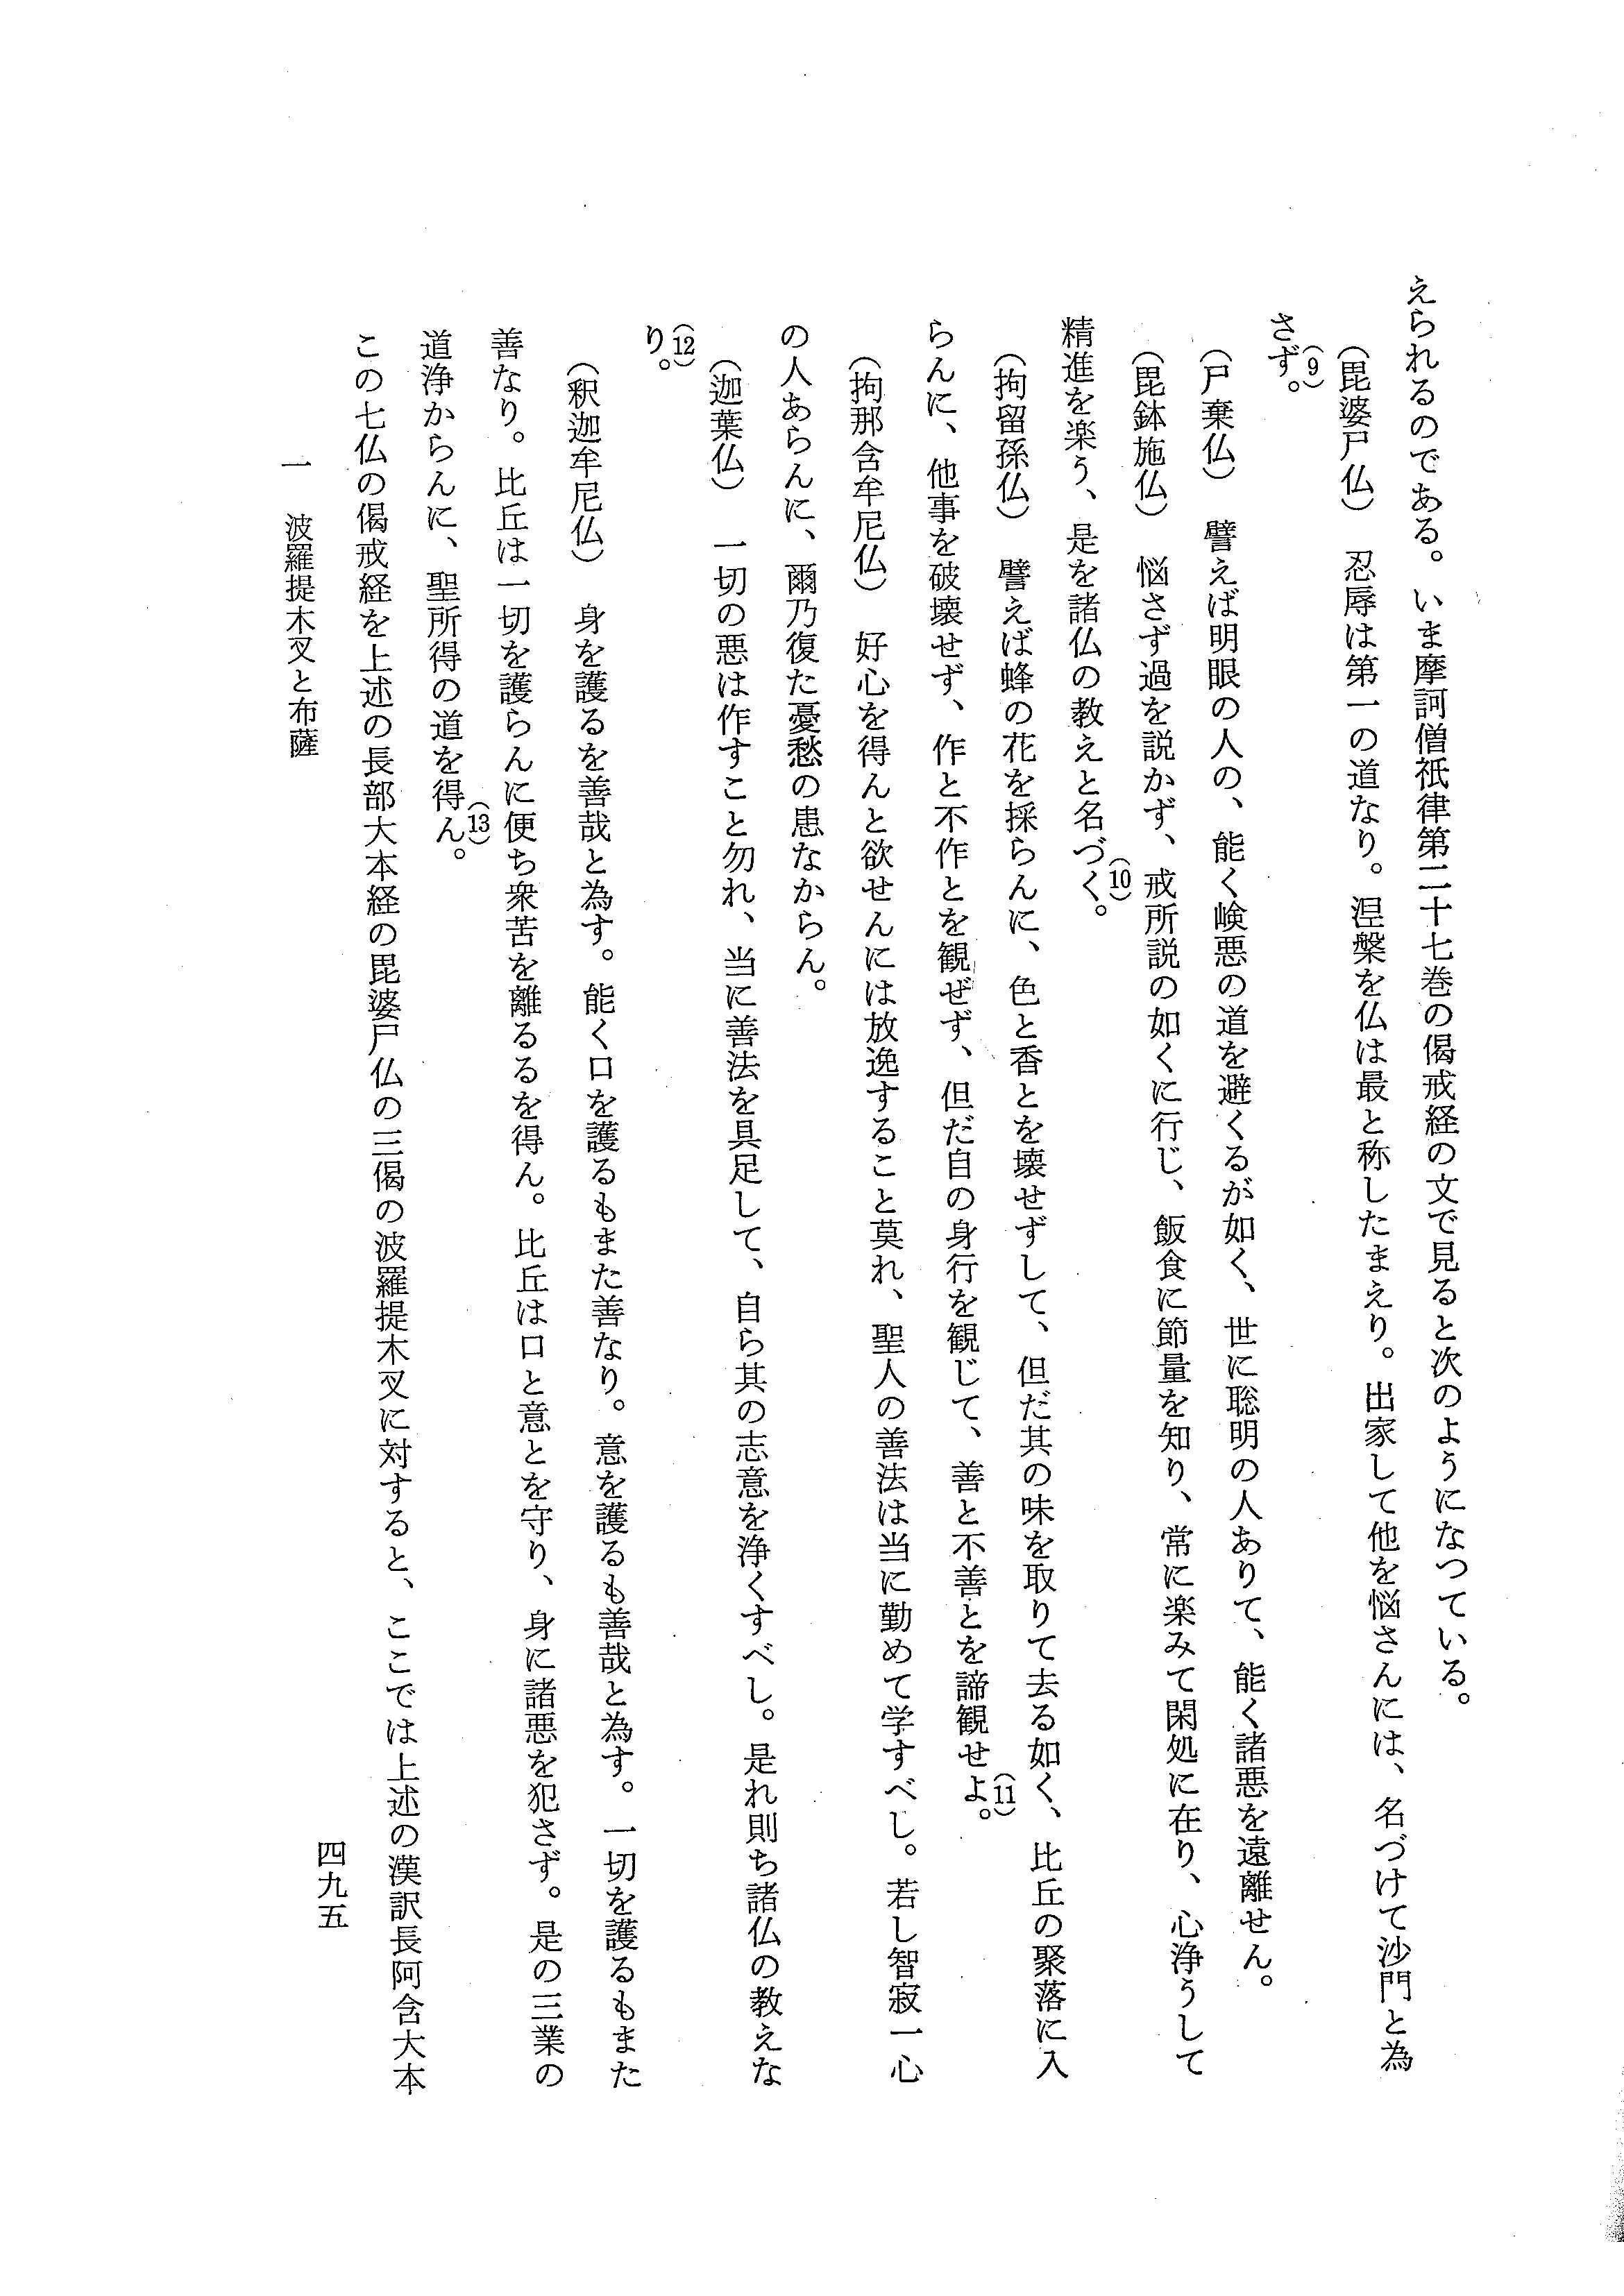 えられるのである。いま摩訶僧祇律第二十七巻の偈戒経の文で見ると次のようになつている。
(毘婆尸仏) 忍辱は第一の道なり。涅槃を仏は最と称したまえり。出家して他を悩さんには、名づけて沙門と為
さず。(9)
(尸棄仏) 譬えば明眼の人の、能く嶮悪の道を避くるが如く、世に聡明の人ありて、能く諸悪を遠離せん。
(毘鉢施仏) 悩さず過を説かず、戒所説の如くに行じ、飯食に節量を知り、常に楽みて閑処に在り、心浄うして
精進を楽う、是を諸仏の教えと名づく。(10)
(拘留孫仏) 譬えば蜂の花を採らんに、色と香とを壊せずして、但だ其の味を取りて去る如く、比丘の聚落に入
らんに、他事を破壊せず、作と不作とを観ぜず、但だ自の身行を観じて、善と不善とを諦観せよ。(11)
(拘那含牟尼仏) 好心を得んと欲せんには放逸すること莫れ、聖人の善法は当に勤めて学すべし。若し智寂一心
の人あらんに、爾乃復た憂愁の患なからん。
(迦葉仏) 一切の悪は作すこと勿れ、当に善法を具足して、自ら其の志意を浄くすべし。是れ則ち諸仏の教えな
り。(12)
(釈迦牟尼仏) 身を護るを善哉と為す。能く口を護るもまた善なり。意を護るも善哉と為す。一切を護るもまた
善なり。比丘は一切を護らんに便ち衆苦を離るるを得ん。比丘は口と意とを守り、身に諸悪を犯さず。是の三業の
道浄からんに、聖所得の道を得ん。(13)
この七仏の偈戒経を上述の長部大本経の毘婆尸仏の三偈の波羅提木叉に対すると、ここでは上述の漢訳長阿含大本
一 波羅提木叉と布薩
四九五